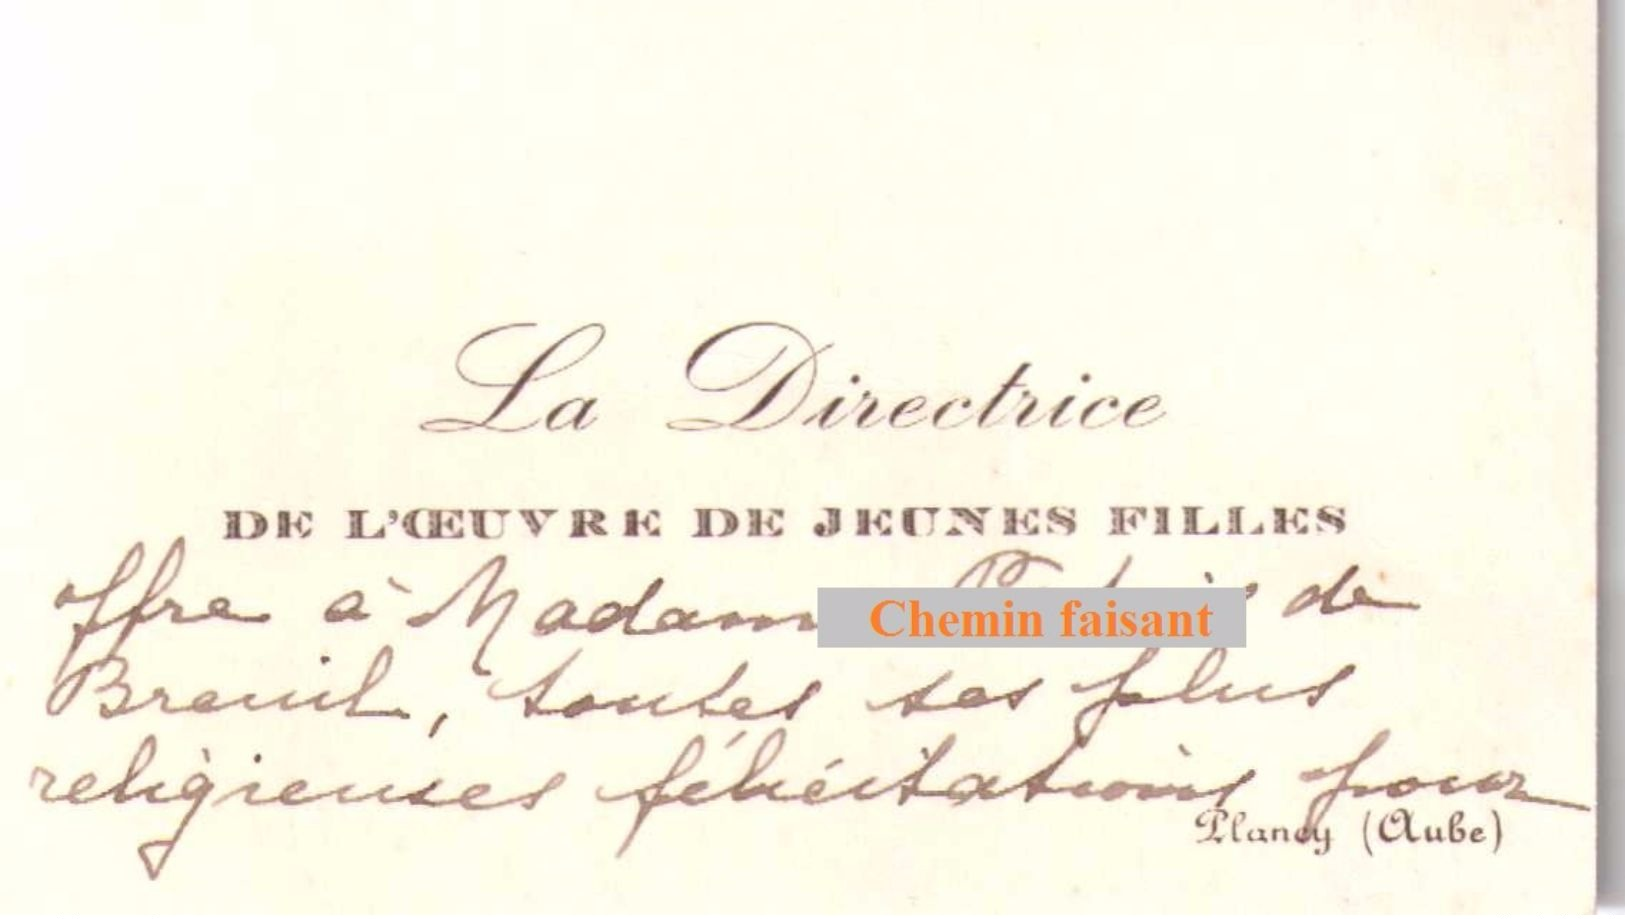 La Directrice
DE L'ŒUVRE DE JEUNES FILLES
offre à Madame Chemin faisant de
Breuil, toutes ses plus
religieuses félicitations pour
Plancy (Aube)